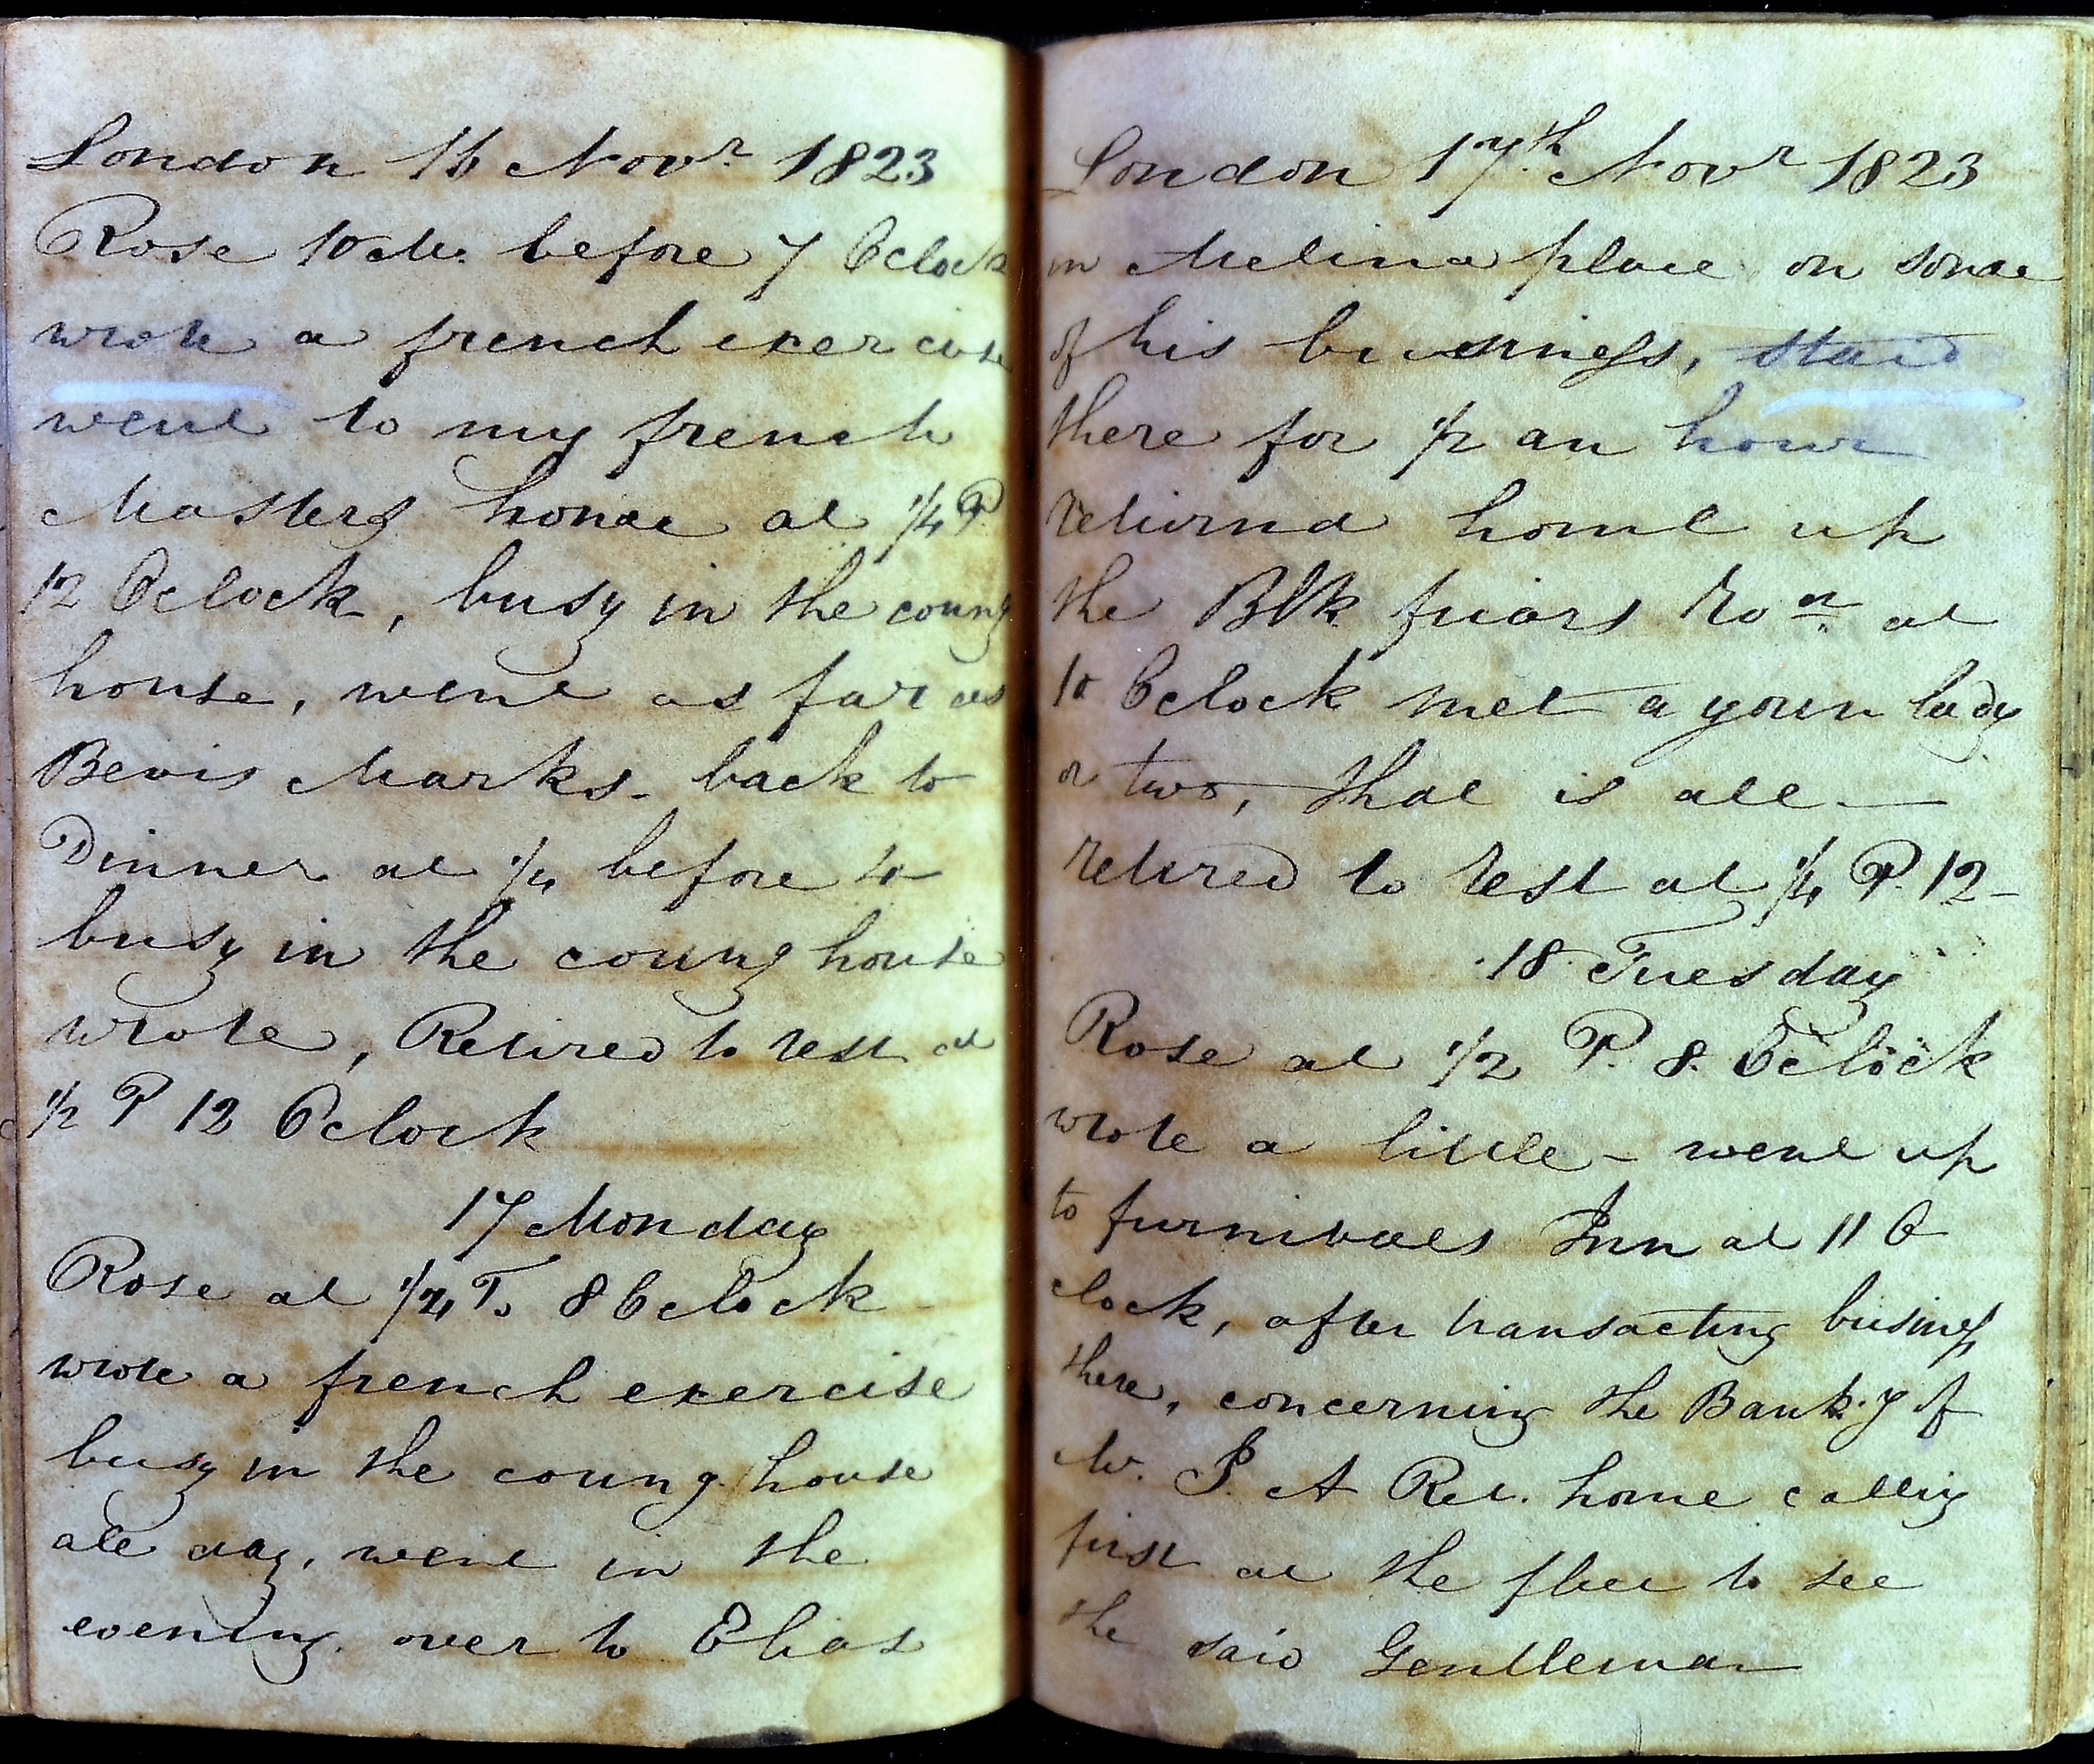 London 16 Novr 1823
Rose 10 M. before 7 Oclock
wrote a french exercise
went to my french
Masters house at 1/4 P.
12 Oclock, busy in the coung
house, went as far as
Bevis Marks - back to
Dinner at 1/4 before 4
busy in the coung house
wrote, Retired to rest at
1/2 P 12 Oclock
17 Monday
Rose at P. 8 Oclock
wrote a french exercise
busy in the coung house
all day, went in the
evening over to Elias
London 17th Novr 1823
in Melina place on some
of his business, staid
there for 1/2 an hour
returnd home up
the Blk friars Road at
10 Oclock met a youn lady
or two, that is all —
retired to rest at 1/4 P. 12 -
18 Tuesday
Rose at 1/2 P. 8. Oclock
wrote a little - went up
to furnivals Inn at 11 O
clock, after transacting business
there, concerning the Bank.y of
M. A Ret. home calling
first at the fleet to see
the said Gentleman